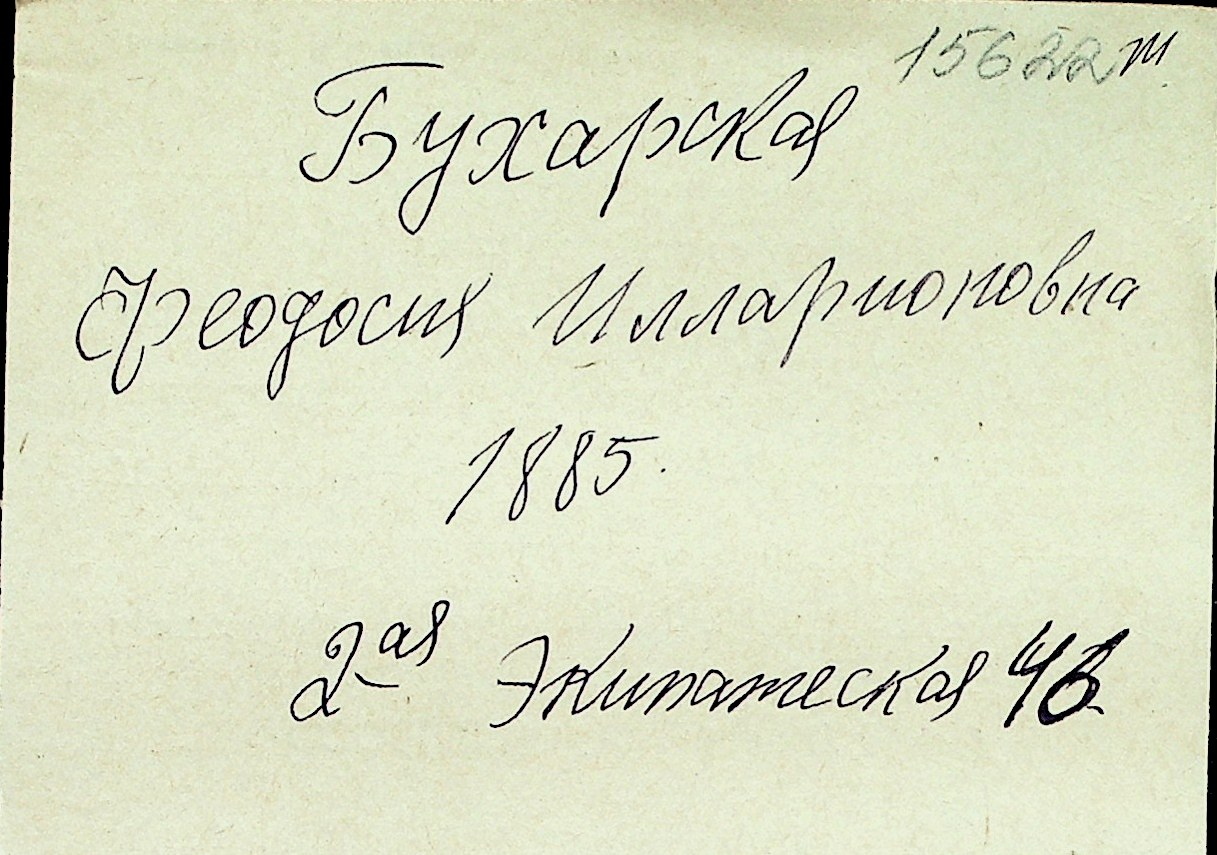 15622т
Бухарская
Феодосия Илларионовна
1885.
2ая Экипатеская